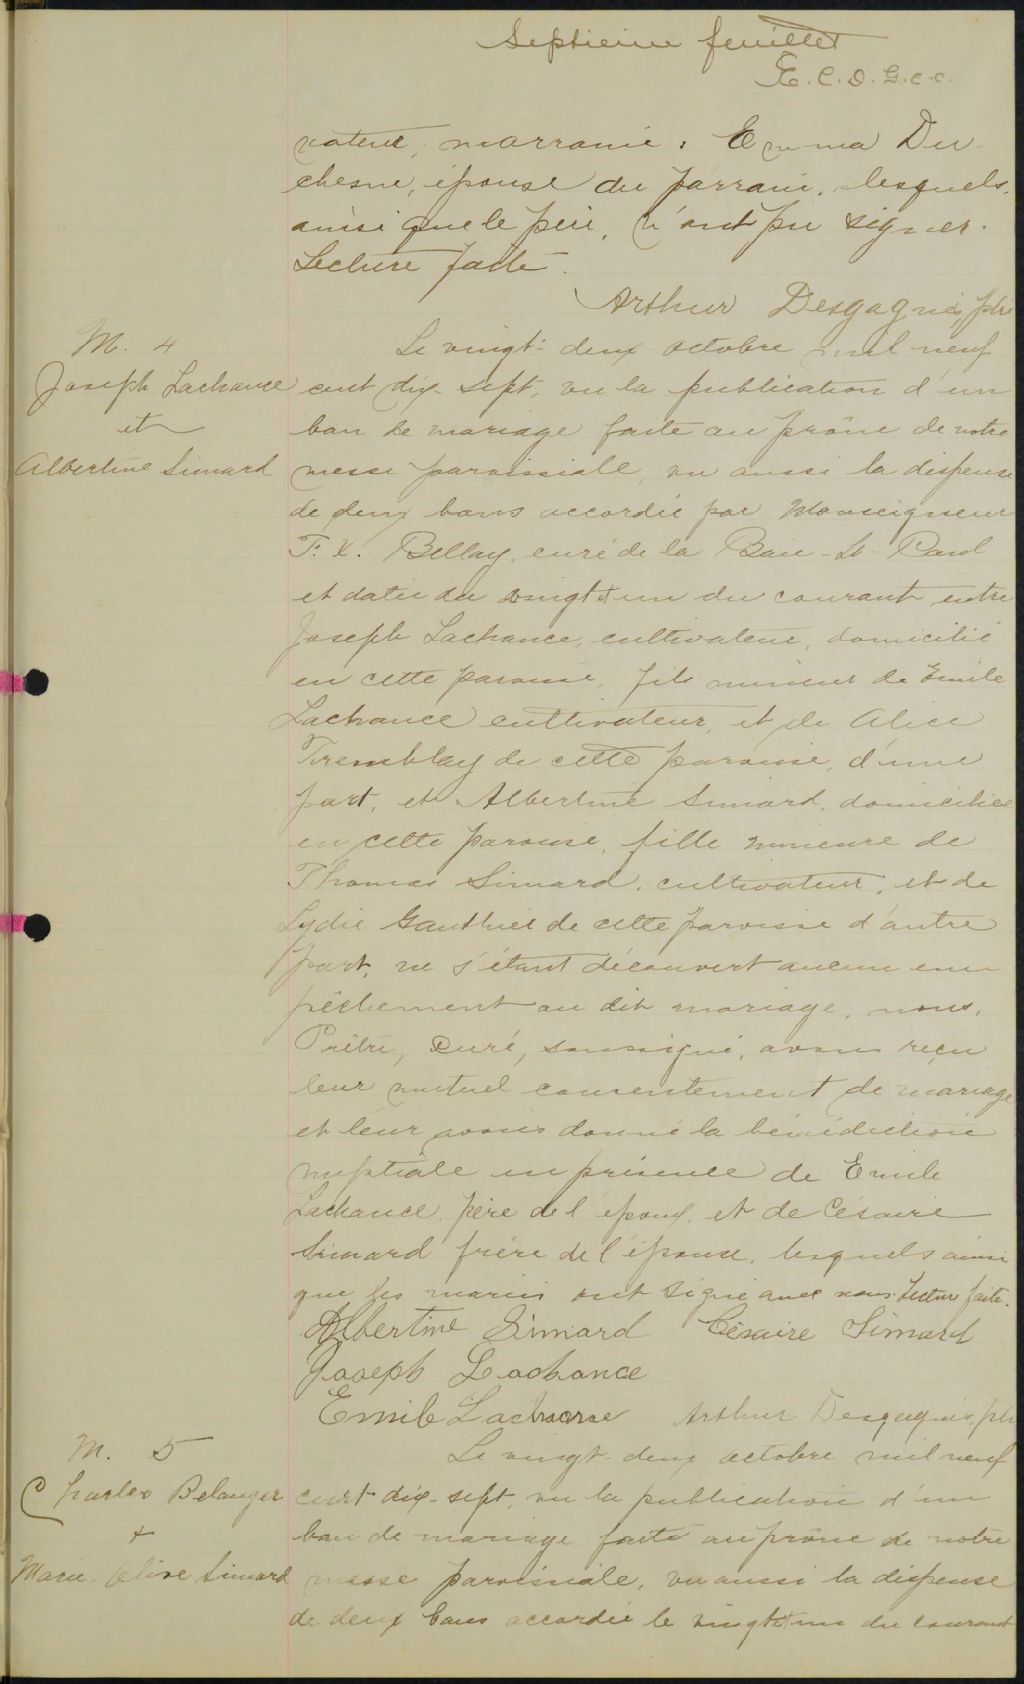 Septième feuillet
E. C. D. G. c. c.
vateur, marraine : Emma Du-
chesne, épouse du parrain, lesquels,
ainsi que le père, n'ont pu signer.
Lecture faite.
Arthur Desgagnés, ptre
M. 4
Joseph Lachance
et
Albertine Simard
Le vingt-deux octobre mil neuf
cent dix-sept, vu la publication d'un
ban de mariage faite au prône de notre
messe paroissiale, vu aussi la dispense
de deux bans accordée par Monseigneur
F. X. Bellay, curé de la Baie-St-Paul
et datée du vingt et un du courant entre
Joseph Lachance, cultivateur, domicilié
en cette paroisse, fils mineur de Emile
Lachance cultivateur, et de Alice
Tremblay de cette paroisse, d'une
part, et Albertine Simard, domiciliée
en cette paroisse, fille mineure de
Thomas Simard, cultivateur, et de
Lydie Gauthier de cette paroisse d'autre
part, ne s'étant découvert aucun em
pêchement au dit mariage, nous,
Prêtre, Curé, soussigné, avons reçu
leur mutuel consentement de mariage
et leur avons donné la bénédiction
nuptiale en présence de Emile
Lachance, père de l'époux, et de Césaire
Simard frère de l'épouse, lesquels ainsi
que les mariés ont signé avec nous. Lecture faite.
Albertine Simard Césaire Simard
Joseph Lachance
Emile Lachance Arthur Desgagnés, ptre
M. 5
Charles Belanger
+
Marie-Olive Simard
Le vingt-deux octobre mil neuf
cent dix-sept, vu la publication d'un
ban de mariage faite au prône de notre
messe paroissiale, vu aussi la dispense
de deux bans accordée le vingt et un du courant